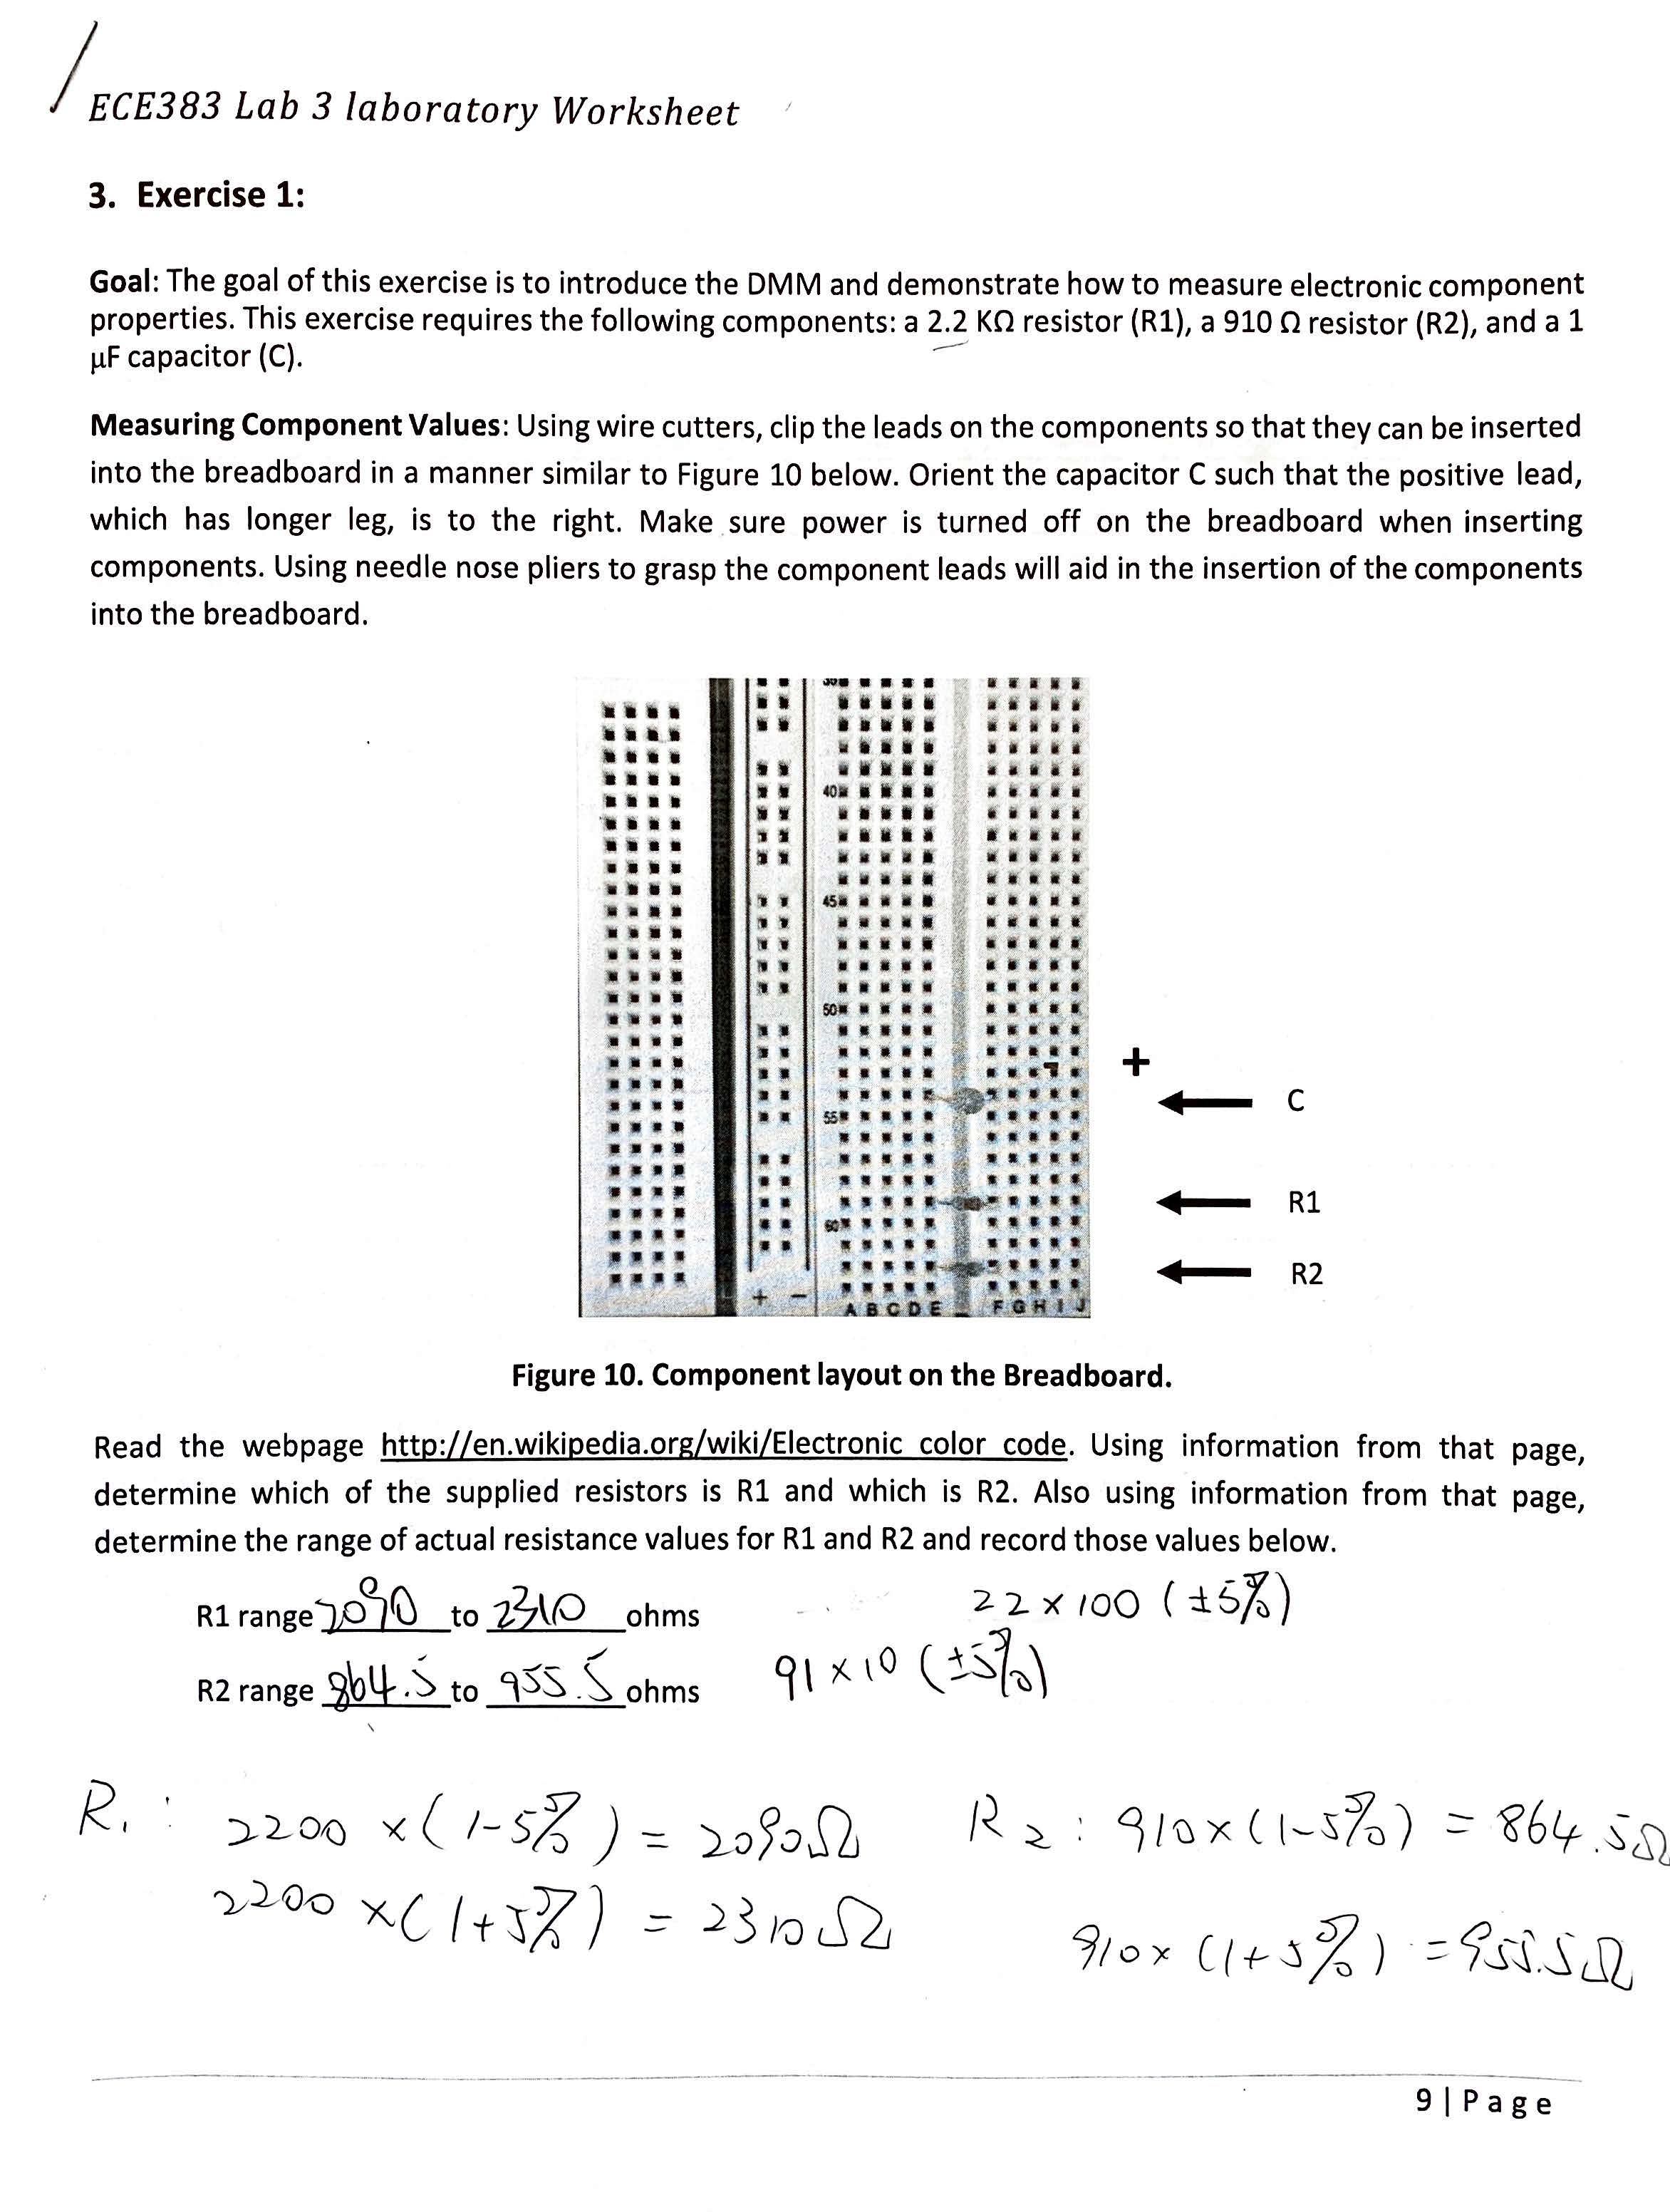 ECE383 Lab 3 laboratory Worksheet
3. Exercise 1:
Goal: The goal of this exercise is to introduce the DMM and demonstrate how to measure electronic component
properties. This exercise requires the following components: a 2.2 KΩ resistor (R1), a 910 Ω resistor (R2), and a 1
μF capacitor (C).
Measuring Component Values: Using wire cutters, clip the leads on the components so that they can be inserted
into the breadboard in a manner similar to Figure 10 below. Orient the capacitor C such that the positive lead,
which has longer leg, is to the right. Make sure power is turned off on the breadboard when inserting
components. Using needle nose pliers to grasp the component leads will aid in the insertion of the components
into the breadboard.
40
45
50
- +
C
55
R1
60
R2
+ -
A B C D E F G H I J
Figure 10. Component layout on the Breadboard.
Read the webpage http://en.wikipedia.org/wiki/Electronic_color_code. Using information from that page,
determine which of the supplied resistors is R1 and which is R2. Also using information from that page,
determine the range of actual resistance values for R1 and R2 and record those values below.
R1 range 2090 to 2310 ohms 22 x 100 (±5%)
R2 range 864.5 to 955.5 ohms 91 x 10 (±5%)
R1: 2200 x (1-5%) = 2090Ω R2: 910 x (1-5%) = 864.5Ω
2200 x (1+5%) = 2310Ω 910 x (1+5%) = 955.5Ω
9 | Page